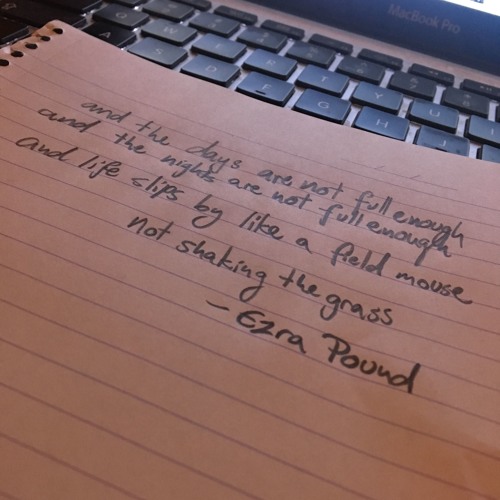 MacBook Pro
Q W E R T Y U
A S D F G H J
and the days are not full enough
and the nights are not full enough
And life slips by like a field mouse
not shaking the grass
- Ezra Pound